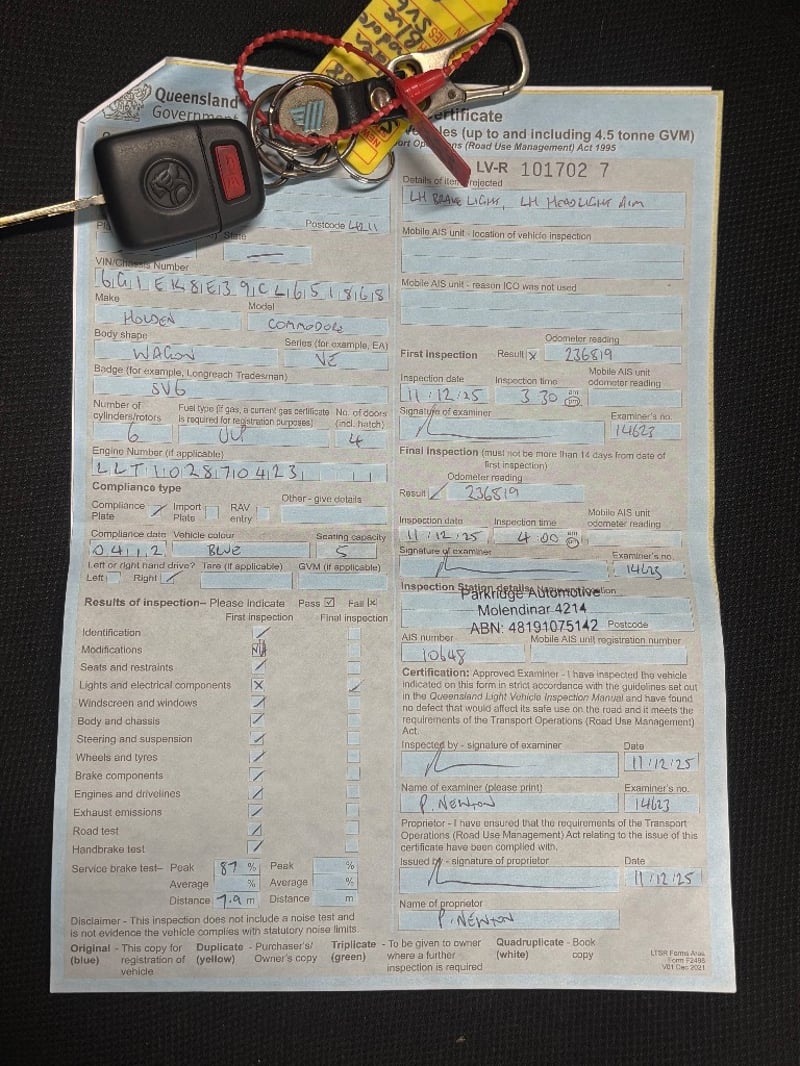 Queensland
Government
Certificate
(up to and including 4.5 tonne GVM)
(Road Use Management) Act 1995
LV-R 101702 7
Details of item rejected
LH BRAKE LIGHT, LH HEADLIGHT AIM
Postcode 4211
State
Mobile AIS unit - location of vehicle inspection
VIN/Chassis Number
6G1EK8E39CL651868
Mobile AIS unit - reason ICO was not used
Make
Model
HOLDEN
COMMODORE
Body shape
Series (for example, EA)
WAGON
VE
Badge (for example, Longreach Tradesman)
SV6
Number of cylinders/rotors
Fuel type (if gas, a current gas certificate is required for registration purposes)
No. of doors (incl. hatch)
6
ULP
4
Engine Number (if applicable)
LLT102870423
Compliance type
Compliance Plate
Import Plate
RAV entry
Other - give details
Compliance date
Vehicle colour
Seating capacity
04 12
BLUE
5
Left or right hand drive?
Tare (if applicable)
GVM (if applicable)
Left
Right
Results of inspection– Please indicate Pass ☑ Fail ☒
First inspection
Final inspection
Identification
Modifications
Seats and restraints
Lights and electrical components
Windscreen and windows
Body and chassis
Steering and suspension
Wheels and tyres
Brake components
Engines and drivelines
Exhaust emissions
Road test
Handbrake test
Service brake test– Peak 87 % Peak %
Average % Average %
Distance 7.9 m Distance m
Disclaimer - This inspection does not include a noise test and
is not evidence the vehicle complies with statutory noise limits.
Odometer reading
First Inspection Result x 236819
Inspection date
Inspection time
Mobile AIS unit odometer reading
11/12/25
3 30 am pm
Signature of examiner
Examiner's no.
14623
Final Inspection (must not be more than 14 days from date of
first inspection)
Odometer reading
Result 236819
Inspection date
Inspection time
Mobile AIS unit odometer reading
11/12/25
4 00
Signature of examiner
Examiner's no.
14623
Inspection Station details
Parkridge Automotive
Molendinar 4214
ABN: 48191075142 Postcode
AIS number
Mobile AIS unit registration number
10648
Certification: Approved Examiner - I have inspected the vehicle
indicated on this form in strict accordance with the guidelines set out
in the Queensland Light Vehicle Inspection Manual and have found
no defect that would affect its safe use on the road and it meets the
requirements of the Transport Operations (Road Use Management)
Act.
Inspected by - signature of examiner
Date
11/12/25
Name of examiner (please print)
Examiner's no.
P. NEWTON
14623
Proprietor - I have ensured that the requirements of the Transport
Operations (Road Use Management) Act relating to the issue of this
certificate have been complied with.
Issued by - signature of proprietor
Date
11/12/25
Name of proprietor
P. NEWTON
Original (blue) - This copy for registration of vehicle
Duplicate (yellow) - Purchaser's/Owner's copy
Triplicate (green) - To be given to owner where a further inspection is required
Quadruplicate (white) - Book copy
LTSR Forms Area
Form F2498
V01 Dec 2021